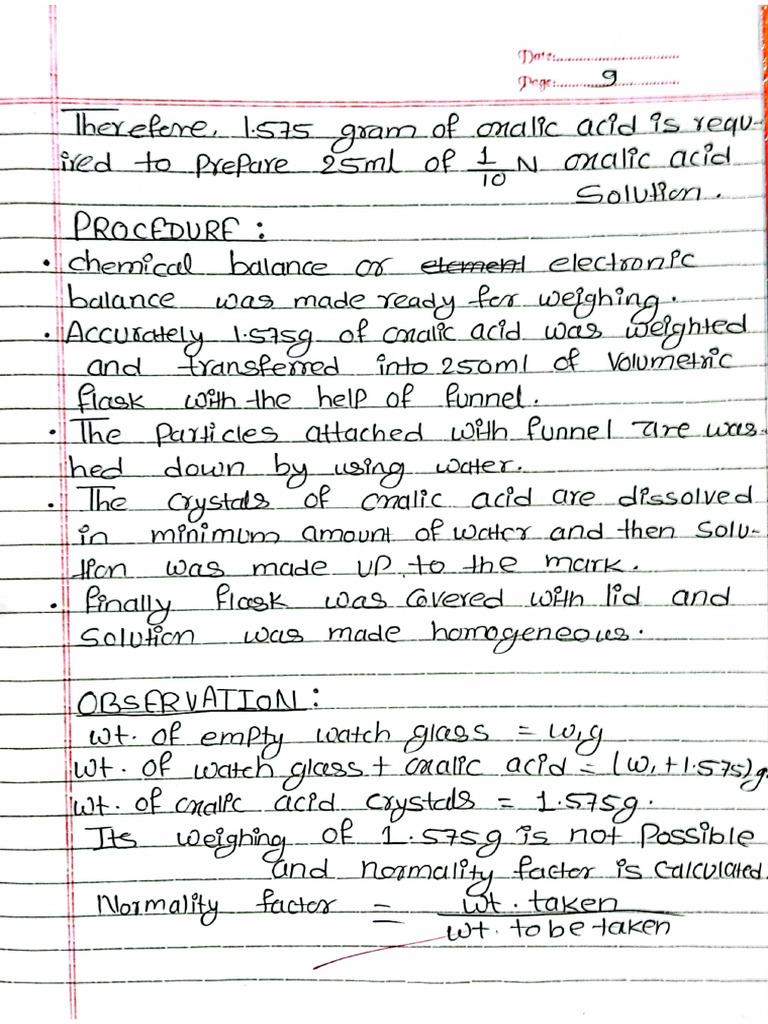 Date:
Page: 9
Therefore, 1.575 gram of oxalic acid is requ-
ired to prepare 25ml of 1/10 N oxalic acid
solution.
PROCEDURE:
• chemical balance or element electronic
balance was made ready for weighing.
• Accurately 1.575g of oxalic acid was weighted
and transferred into 250ml of volumetric
flask with the help of funnel.
• The particles attached with funnel are was
hed down by using water.
• The crystals of oxalic acid are dissolved
in minimum amount of water and then solu-
tion was made up to the mark.
• finally flask was covered with lid and
solution was made homogeneous.
OBSERVATION:
wt. of empty watch glass = w₁g
wt. of watch glass + oxalic acid = (w₁+1.575)g
wt. of oxalic acid crystals = 1.575g.
Its weighing of 1.575g is not possible
and normality factor is calculated.
Normality factor = wt. taken / wt. to be taken